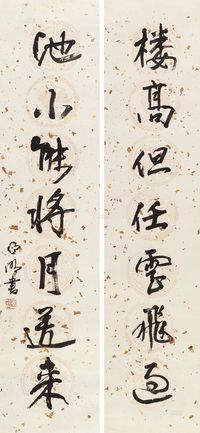 楼高但任雲飛過
池小能将月送来
書